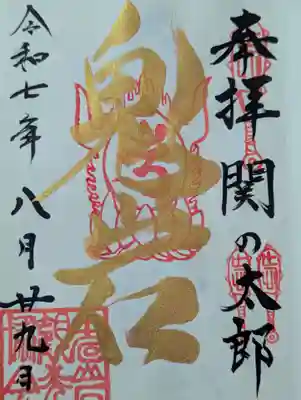 奉拝関の太郎
鬼岩
令和七年八月廿九日